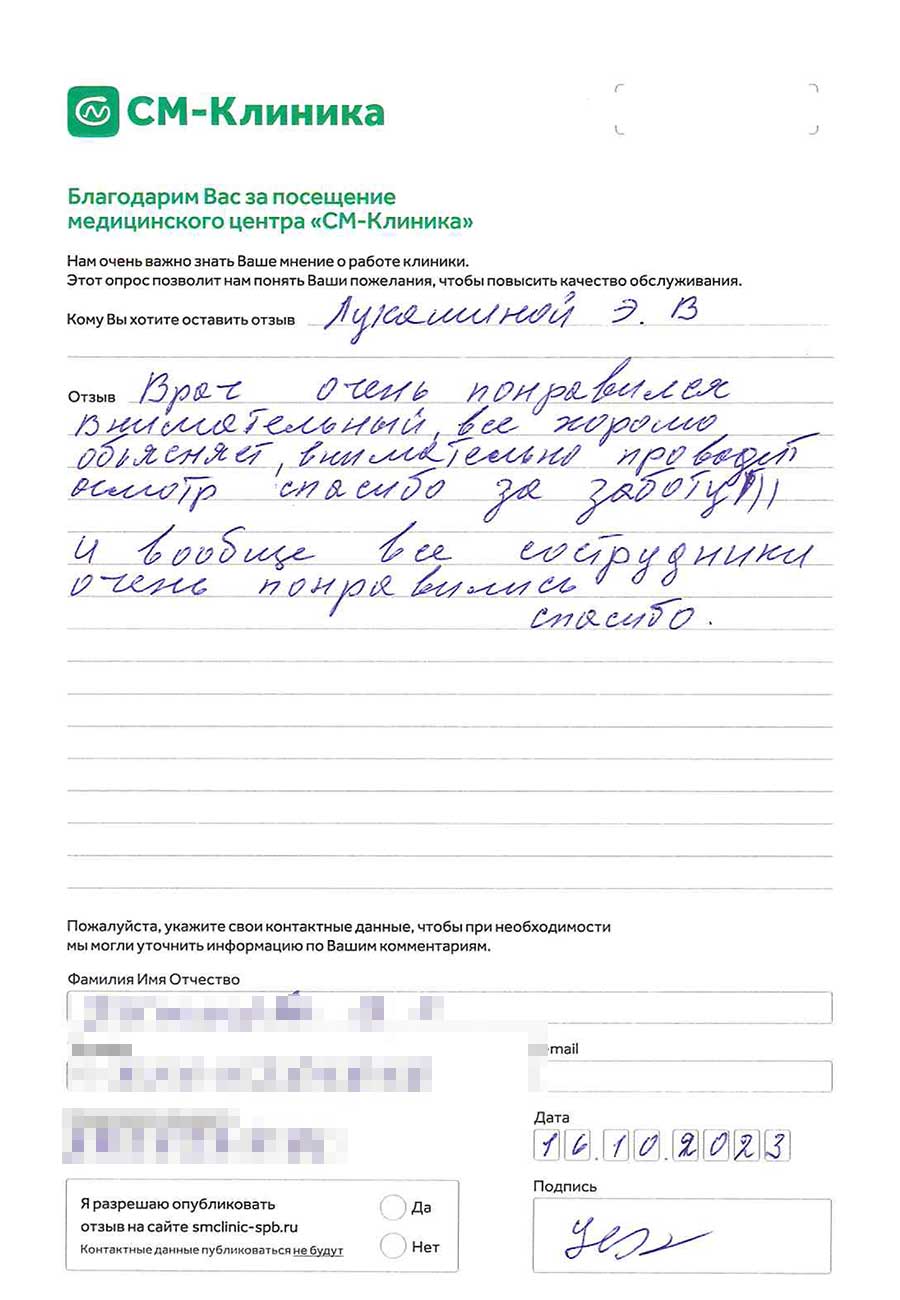 СМ-Клиника
Благодарим Вас за посещение
медицинского центра «СМ-Клиника»
Нам очень важно знать Ваше мнение о работе клиники.
Этот опрос позволит нам понять Ваши пожелания, чтобы повысить качество обслуживания.
Кому Вы хотите оставить отзыв Лукашиной Э. В
Отзыв Врач очень понравился
внимательный, все хорошо
объясняет, внимательно проводит
осмотр спасибо за заботу)))
И вообще все сотрудники
очень понравились
спасибо.
Пожалуйста, укажите свои контактные данные, чтобы при необходимости
мы могли уточнить информацию по Вашим комментариям.
Фамилия Имя Отчество
email
Дата
16.10.2023
Подпись
Я разрешаю опубликовать
отзыв на сайте smclinic-spb.ru
Контактные данные публиковаться не будут
Да
Нет